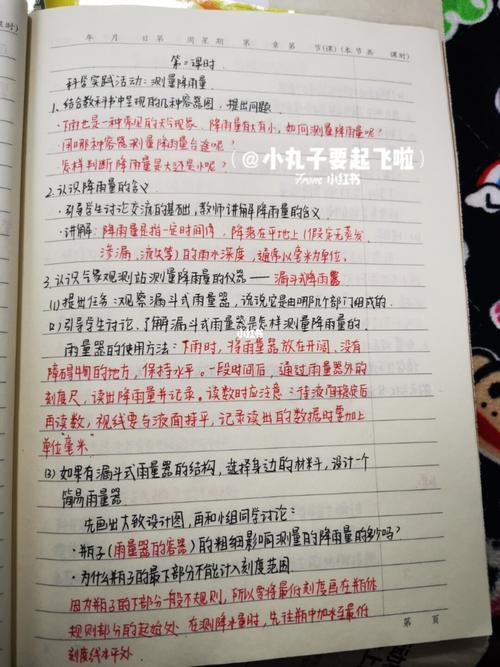 年 月 日第 周星期 第 章第 节(课)(本节共 课时)
第二课时
科学实践活动:测量降雨量
1、结合教科书中呈现的几种容器图,提出问题
·下雨也是一种常见的天气现象、降雨量有大有小,如何测量降雨量呢?
·用哪种容器测量降雨量合适呢?
·怎样判断降雨量是大还是小呢?
(@小丸子要起飞啦)
From 小红书
2.认识降雨量的含义
·引导学生讨论交流的基础,教师讲解降雨量的含义
·讲解:降雨量是指一定时间内,降落在平地上(假定无蒸发、
渗漏、流失等)的雨水深度,通常以毫米为单位。
3.认识气象观测站测量降雨量的仪器——漏斗式雨量器
(1)提出任务:观察漏斗式雨量器,说说它是由哪几个部门组成的.
(2)引导学生讨论,了解漏斗式雨量器是怎样测量降雨量的.
小红书
雨量器的使用方法:下雨时,将雨量器放在开阔、没有
障碍物的地方,保持水平。一段时间后,通过雨量器外的
刻度尺,读出降雨量并记录。读数时应注意:待液面稳定后
再读数,视线要与液面持平,记录读出的数据时要加上
单位"毫米"
(3)如果有漏斗式雨量器的结构,选择身边的材料,设计一个
简易雨量器
先画出大致设计图,再和小组同学讨论:
·瓶子(雨量器的容器)的粗细影响测量的降雨量的多少吗?
·为什么瓶子的最下部分不能计入刻度范围
因为瓶子的下部分一般不规则,所以要将最低刻度画在瓶体
规则部分的起始处.在测降水量时,先往瓶中加水至最低
刻度线水平处.
第 页